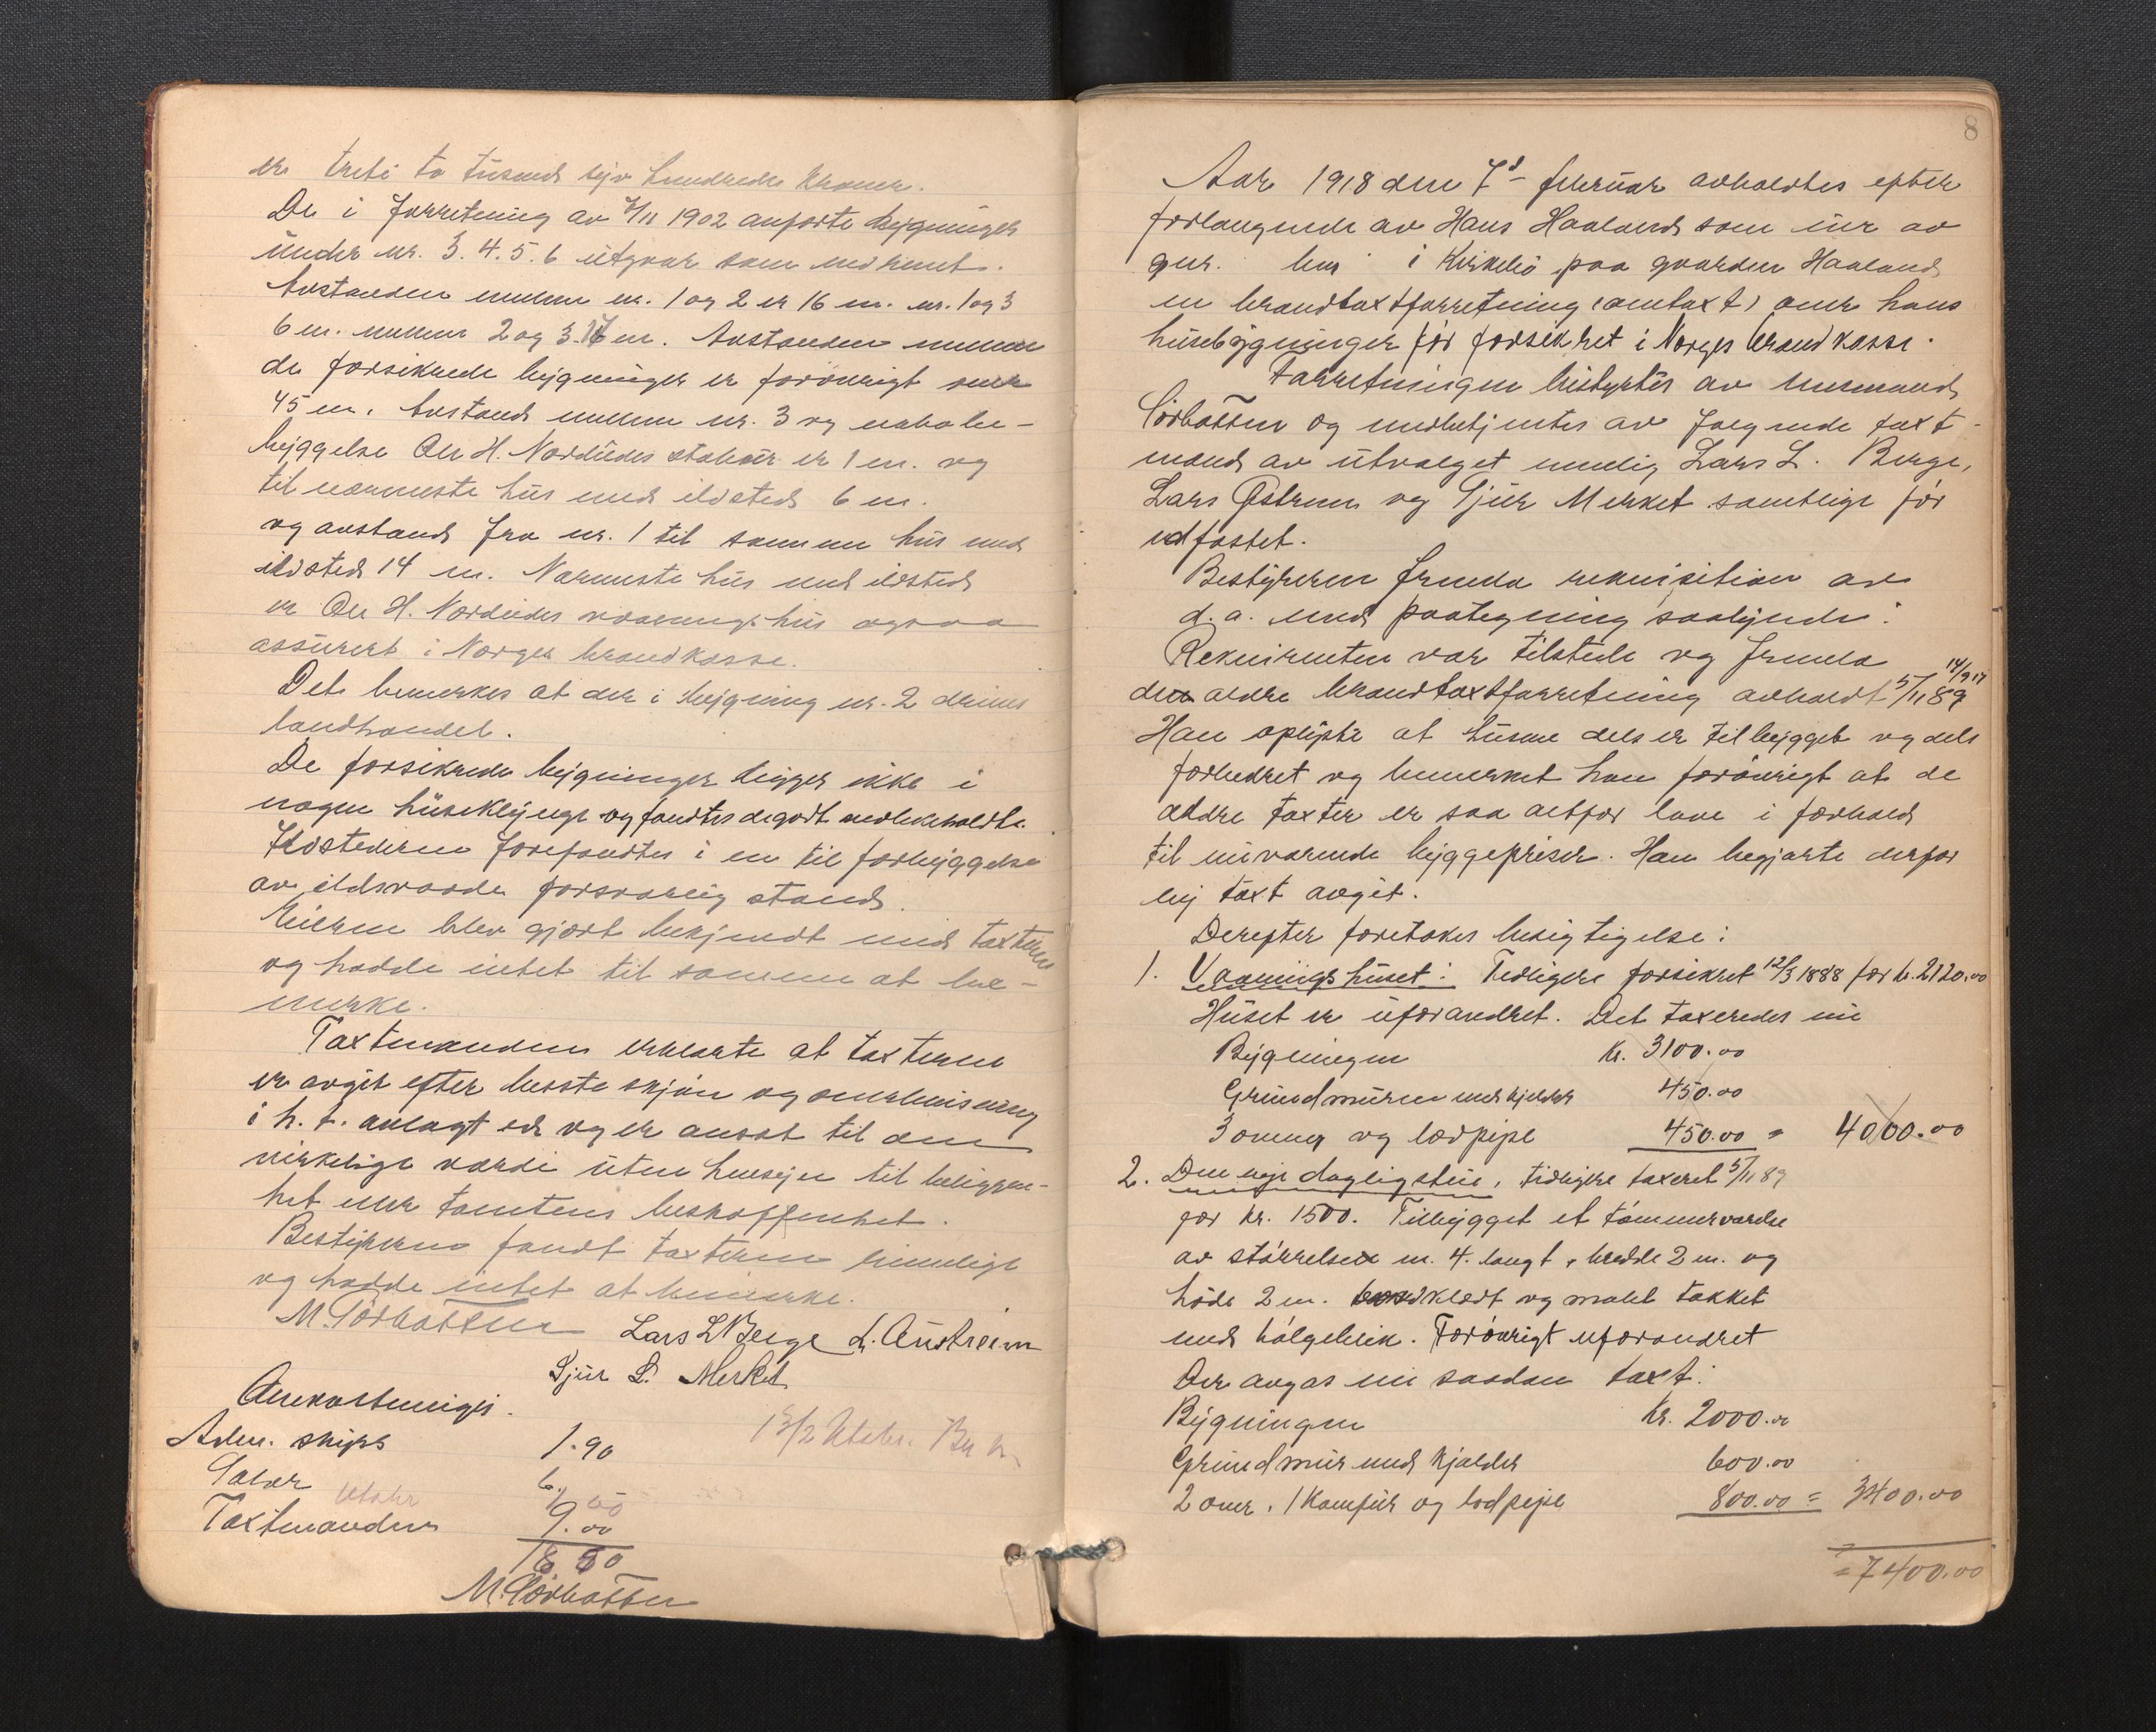 er treti to tusend syv hundrede kroner.
De i forretning av 7/11 1902 anførte bygninger
under nr. 3. 4. 5. 6 utgaar som nedrevet.
Avstanden mellem nr. 1 og 2 er 16 m. nr. 1 og 3
6 m. mellem 2 og 3. 17 m. Avstanden mellem
de forsikrede bygninger er forøvrigt over
45 m. Avstand mellem nr. 3 og nabobe-
byggelse Ole H. Nordeides stabur er 1 m. og
til nærmeste hus med ildsted 6 m.
og avstand fra nr. 1 til samme hus med
ildsted 14 m. Nærmeste hus med ildsted
er Ole H. Nordeides vaaningshus ogsaa
assurert i Norges brandkasse.
Det bemerkes at der i bygning nr. 2 drives
landhandel.
De forsikrede bygninger ligger ikke i
nogen huseklynge og fandtes degodt vedlikeholdte.
Ildstederne forefandtes i en til forbyggelse
av ildsvaade forsvarlig stand.
Eieren blev gjort bekjendt med taxterne
og hadde intet til samme at be-
merke.
Taxtmændene erklærte at taxterne
er avgit efter beste skjøn og overbevisning
i h. t. avlagt ed og er ansat til den
virkelige værdi uten hensyn til beliggen-
het eller tomtens beskaffenhet.
Bestyreren fandt taxterne rimelige
og hadde intet at bemerke.
M. Sørbotten Lars L Berge L. Austreim
Sjur L. Merket
Omkostninger.
Adm. skyss 1.90
Salær 6.
Taxtmændene 9.00
M. Sørbotten
8
Aar 1918 den 7d februar avholdtes efter
forlangende av Hans Haaland som eier av
gnr. bnr i Kirkebø paa gaarden Haaland
en brandtaxtforretning (omtaxt) over hans
husebygninger før forsikret i Norges brandkasse.
Forretningen bestyrtes av lensmand
Sørbotten og medbetjentes av følgende taxt-
mænd av utvalget nemlig Lars L. Berge,
Lars Østrem og Sjur Merket samtlige før
edfæstet.
Bestyreren fremla rekvisition av
d. a. med paategning saalydende:
Rekvirenten var tilstede og fremla
14/9 17
den ældre brandtaxtforretning avholdt 5/11 89
Han oplyste at husene dels er tilbygget og dels
forbedret og bemerket han forøvrigt at de
ældre taxter er saa altfor lave i forhold
til nuværende byggepriser. Han begjærte derfor
ny taxt avgit.
Derefter foretokes besigtigelse:
1. Vaaningshuset: Tidligere forsikret 12/3 1888 for kr. 2120.00
Huset er uforandret. Det taxeredes nu
Bygningen Kr. 3100.00
Grundmuren med kjelder 450.00
3 ovner og lodpipe 450.00 = 4000.00
2. Den nye dagligstue, tidligere taxeret 5/11 89
for kr. 1500. Tilbygget et tømmerværelse
av størrelse m. 4. langt, bredde 2 m. og
høde 2 m. bordklædt og malet takket
med bølgeblik. Forøvrigt uforandret
Der avgas nu saadan taxt:
Bygningen Kr. 2000.00
Grundmur med kjelder 600.00
2 ovner, 1 Komfur og lodpipe 800.00 = 3400.00
= 7400.00